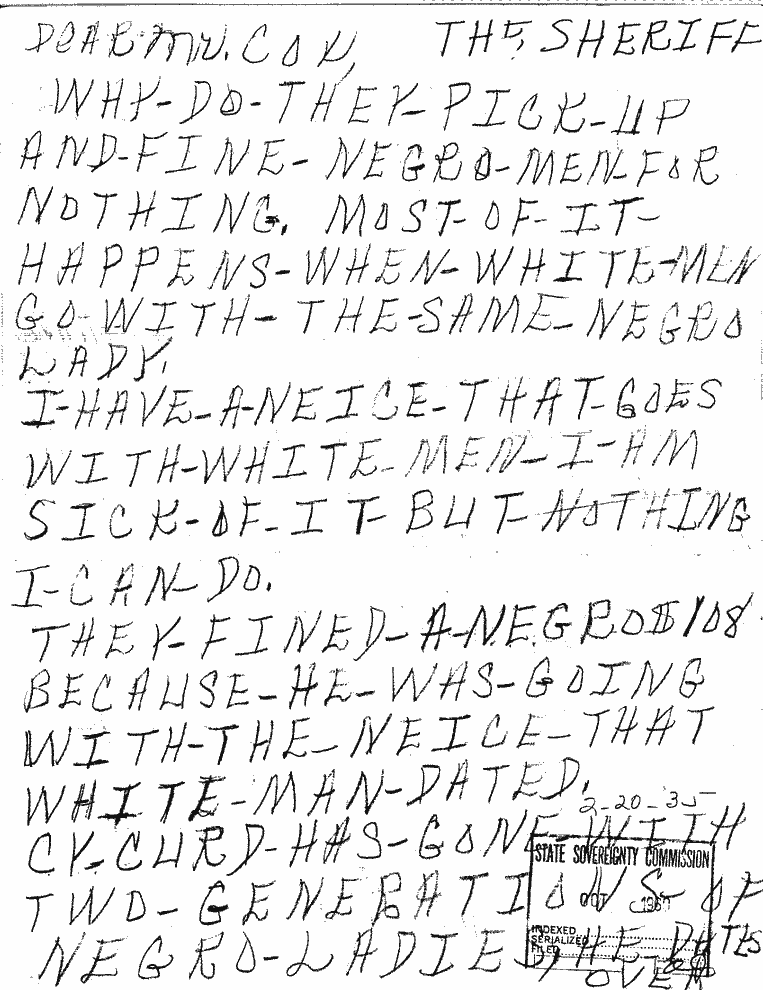 DEAR Mr. COX, THE, SHERIFF
WHY-DO-THEY-PICK-UP
AND-FINE-NEGRO-MEN-FOR
NOTHING. MOST-OF-IT-
HAPPENS-WHEN-WHITE-MEN
GO-WITH-THE-SAME-NEGRO
LADY.
I-HAVE-A-NEICE-THAT-GOES
WITH-WHITE-MEN-I-AM
SICK-OF-IT-BUT-NOTHING
I-CAN-DO.
THEY-FINED-A-NEGRO$108
BECAUSE-HE-WAS-GOING
WITH-THE-NEICE-THAT
WHITE-MAN-DATED.
2-20-35
CY-CURD-HAS-GONE-WITH
STATE SOVEREIGNTY COMMISSION
TWO-GENERATIONS-OF
OCT
INDEXED
SERIALIZED
FILED
NEGRO-LADIES, HE-DATES
OVER